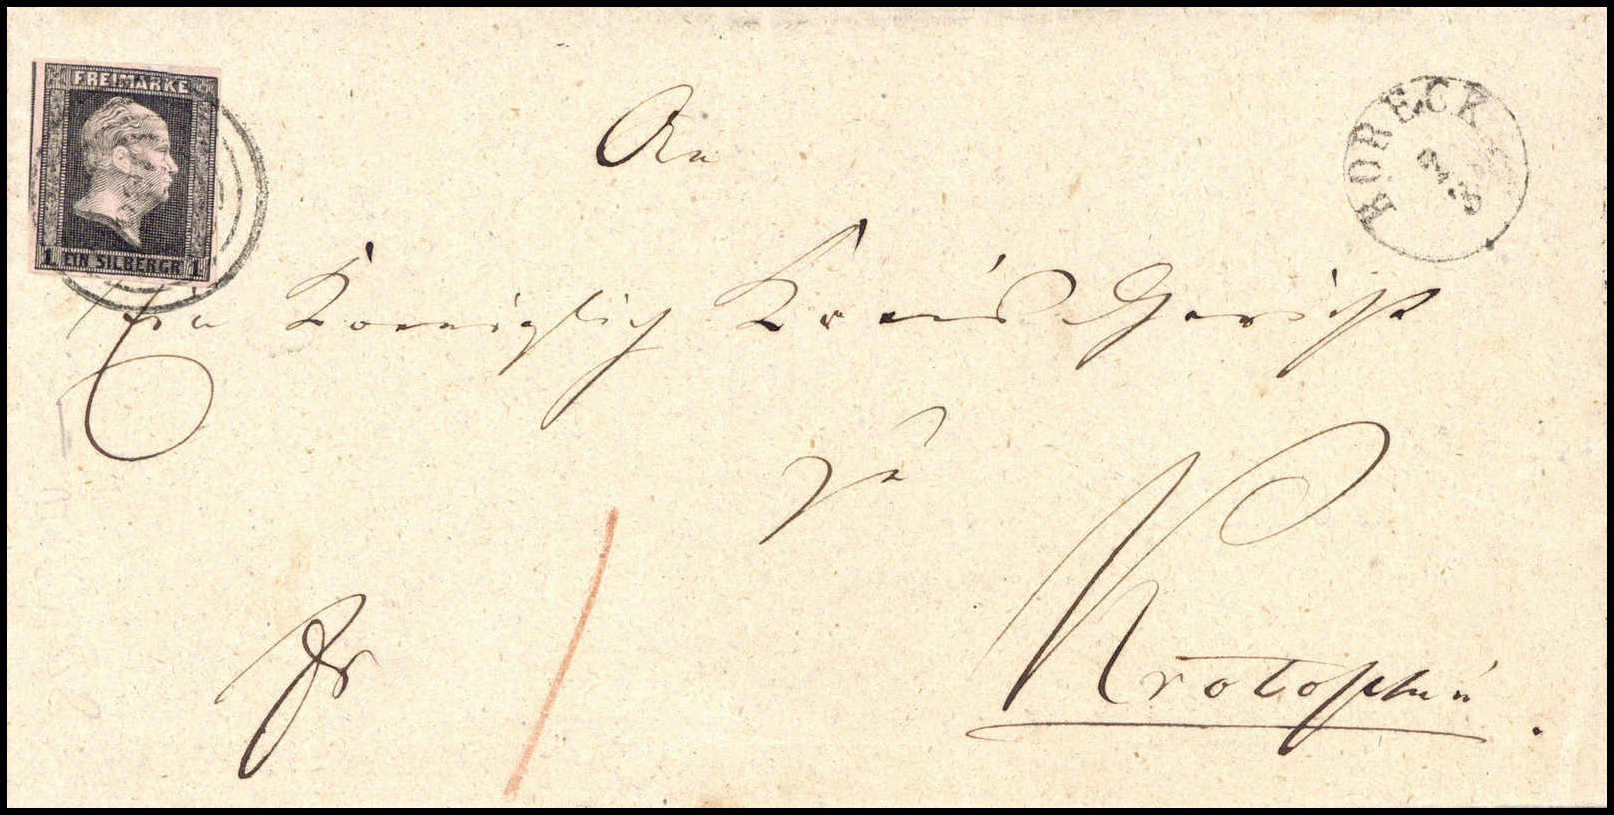 FREIMARKE
1 EIN SILBERGR 1
BORECK
An
Ein Koeniglich Kreis Gericht
zu
Krotoschin.
Fr